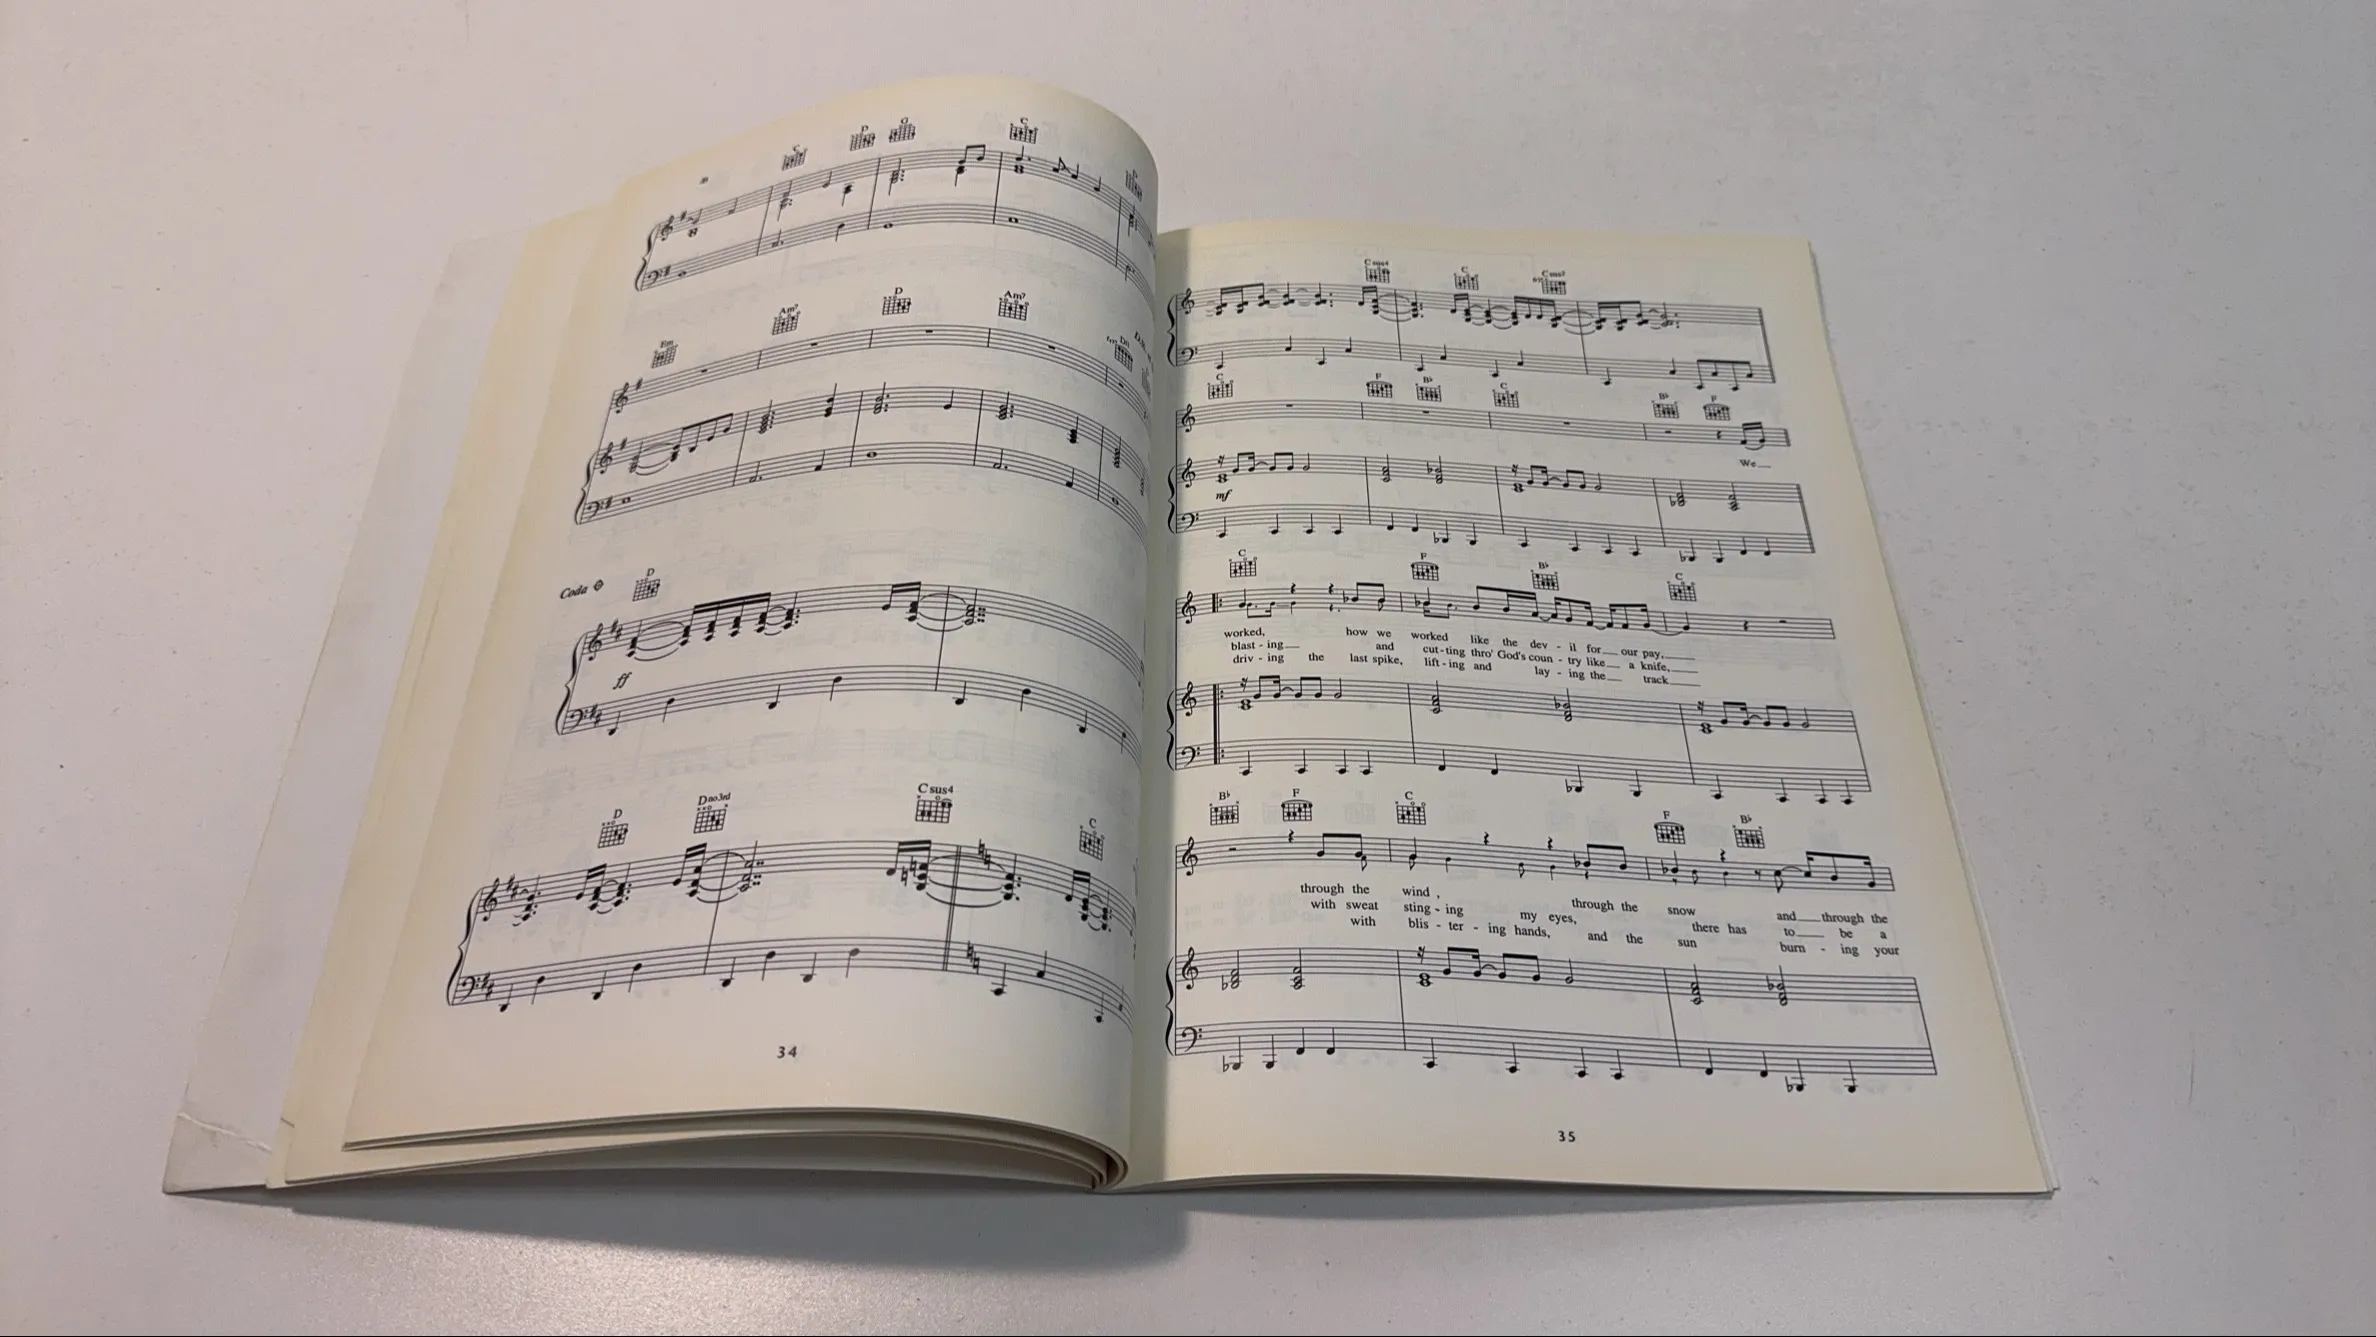 C D G C D
Em Am7 D Am7 D11
Coda D
ff
D Dno3rd Csus4 C
34
Csus4 C Csus2
C F B♭ C B♭ F
We
mf
C F B♭ C
worked, how we worked like the dev - il for our pay,
blast - ing and cut - ting thro' God's coun - try like a knife,
driv - ing the last spike, lift - ing and lay - ing the track
B♭ F C F B♭
through the wind, through the snow and through the
with sweat sting - ing my eyes, there has to be a
with blis - ter - ing hands, and the sun burn - ing your
35